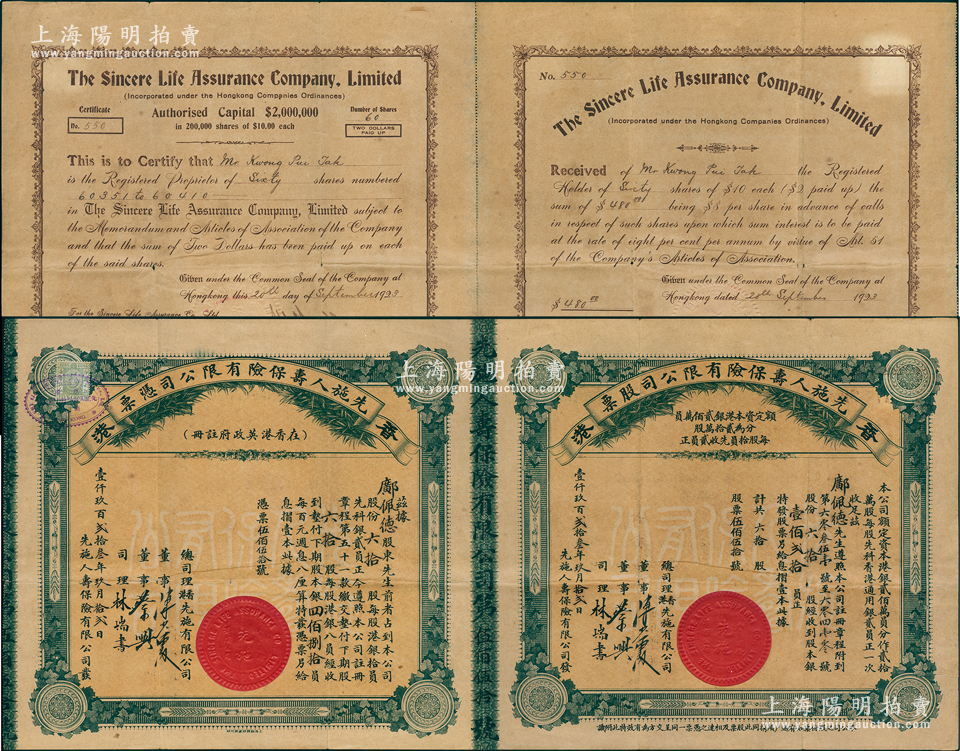 上海陽明拍賣
www.yangmingauction.com
The Sincere Life Assurance Company, Limited
(Incorporated under the Hongkong Companies Ordinances)
Certificate
No. 550
Authorised Capital $2,000,000
in 200,000 shares of $10.00 each
Number of Shares
60
TWO DOLLARS
PAID UP
This is to Certify that Mr Kwong Pui Tak
is the Registered Proprietor of Sixty shares numbered
60351 to 60410
in The Sincere Life Assurance Company, Limited subject to
the Memorandum and Articles of Association of the Company
and that the sum of Two Dollars has been paid up on each
of the said shares.
Given under the Common Seal of the Company at
Hongkong this 20th day of September 1923
For the Sincere Life Assurance Co. Ltd.
No. 550
The Sincere Life Assurance Company, Limited
(Incorporated under the Hongkong Companies Ordinances)
Received of Mr Kwong Pui Tak the Registered
Holder of Sixty shares of $10 each ($2 paid up) the
sum of $480.00 being $8 per share in advance of calls
in respect of such shares upon which sum interest is to be paid
at the rate of eight per cent per annum by virtue of Art. 51
of the Company's Articles of Association.
Given under the Common Seal of the Company at
Hongkong dated 20th September 1923
$480.00
上海陽明拍賣
www.yangmingauction.com
票憑司公限有險保壽人施先
港 香
(冊註府政英港香在)
茲據
鄺佩德股東先生前者占到本公司
股份六拾股每股港銀拾員
先科銀貳員正今遵照本公司註冊
章程第五十一款繳交墊付下期股
到墊付下期股本銀四佰捌拾員
六拾股每股港銀八員經收
每百元週息八厘算特發憑票另給
息摺壹本此據
憑票伍佰伍拾號
總司理 先施有限公司
董事
董事
司理 林瑞書
壹仟玖百弍拾叁年玖月拾弍日
先施人壽保險有限公司發
票股司公限有險保壽人施先
港 香
員萬佰貳銀港本資定額
股萬拾貳為分
正員貳收先員拾股每
本公司額定資本港銀貳佰萬員分作貳拾
萬股每股先科香港通用銀貳員正一次
收足茲
鄺佩德先生遵照本公司註冊章程附到
第六零叁伍壹號至六零四壹零號
股份六拾股經收到股本銀
壹佰弍拾員正
特發股票另給息摺壹本此據
計共六拾股
股票伍佰伍拾號
總司理 先施有限公司
董事
董事
司理 林瑞書
壹仟玖百弍拾叁年玖月拾弍日
先施人壽保險有限公司發
上海陽明拍賣
www.yangmingauction.com